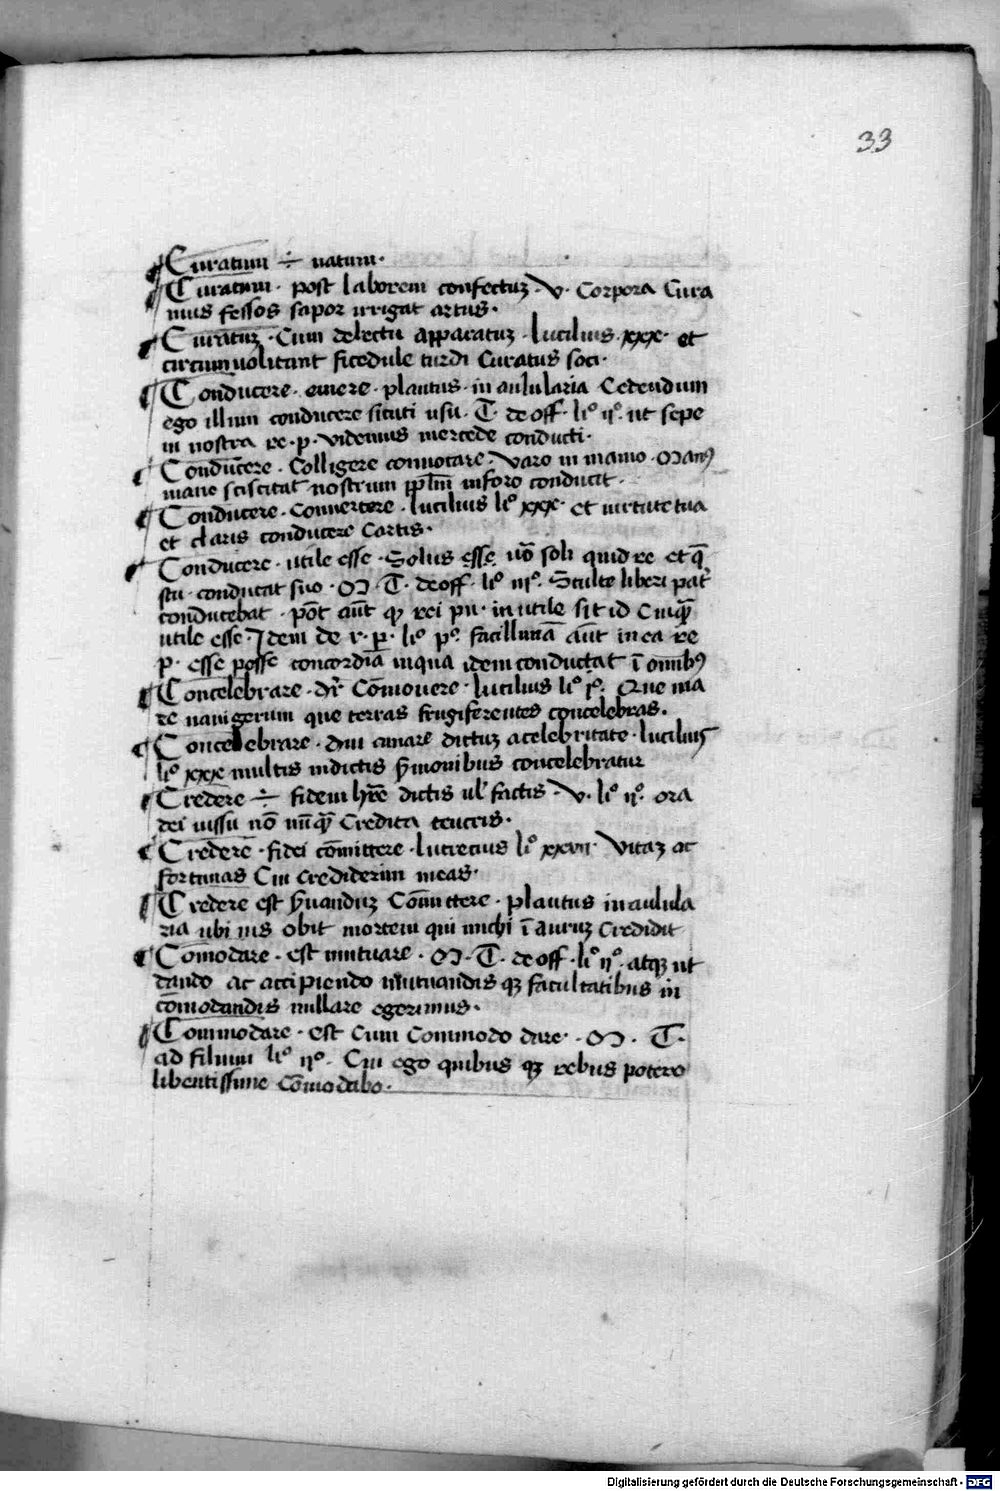 33
Curatum ÷ uatum·
Curatum · post laborem confectuʒ · V · Corpora Cura
mus fessos sapor irrigat artus ·
Curatuʒ · Cum delectu apparatuʒ · lucilius · xxx · et
circumuolitant ficedule turdi Curatus soci ·
Conducere · emere · plautus · in aulularia Cedendum
ego illum conducere situti usu · T · de off · liº · iiº · ut sepe
in nostra re · p · videmus mercede conducti ·
Conducere · Colligere conuocare · Varo in manio · Manꝰ
mane sciscitat nostrum in foro conducit ·
Conducere · Conuertere · lucilius liº xxx · et uirtute tua
et claris conducere Cartis ·
Conducere · utile esse · Solus esse uō soli quid re et q̄
stu · conducat suo · M · T · de off · liº iiiº · Stulte liberi
conducebat · pōt aūt qꝫ rei in utile sit id Cuiqꝫ
utile esse · Idem de r · p · liº pº · facillimā aūt in ea re
p · esse posse concordiā in qua idem conductat ī omībꝰ
Concelebrare · dr̄ Cōmouere · lucilius liº pº · Que ma
re nauigerum que terras frugiferentes concelebras ·
Concelebrare · diui dictuʒ a celebritate · lucilius
liº xxx multis indictis s̄monibus concelebratur
Credere ÷ fidem hr̄e dictis ul̄ factis · V · liº iiº · ora
dei iussu nō uūqꝫ Credita teucris ·
Credere · fidei cōmittere · lucretius liº xxvii · Vitaʒ ac
fortunas Cui crediderim meas ·
Credere est s̄uanduʒ Cōmittere · plautus in aulula
ria ubi nis obit mortem qui michi ī auruʒ Credidit
Comōdare · est mutuare · M · T · de off · liº iiº · atqꝫ ut
dando ac accipiendo mutuandis qꝫ facultatibus in
cōmodandis nullare egerimus ·
Commodare · est Cum Commodo dare · M · T ·
ad filium liº iiº · Cui ego quibus qꝫ rebus potero
libentissime Cōmodabo ·
Digitalisierung gefördert durch die Deutsche Forschungsgemeinschaft - DFG